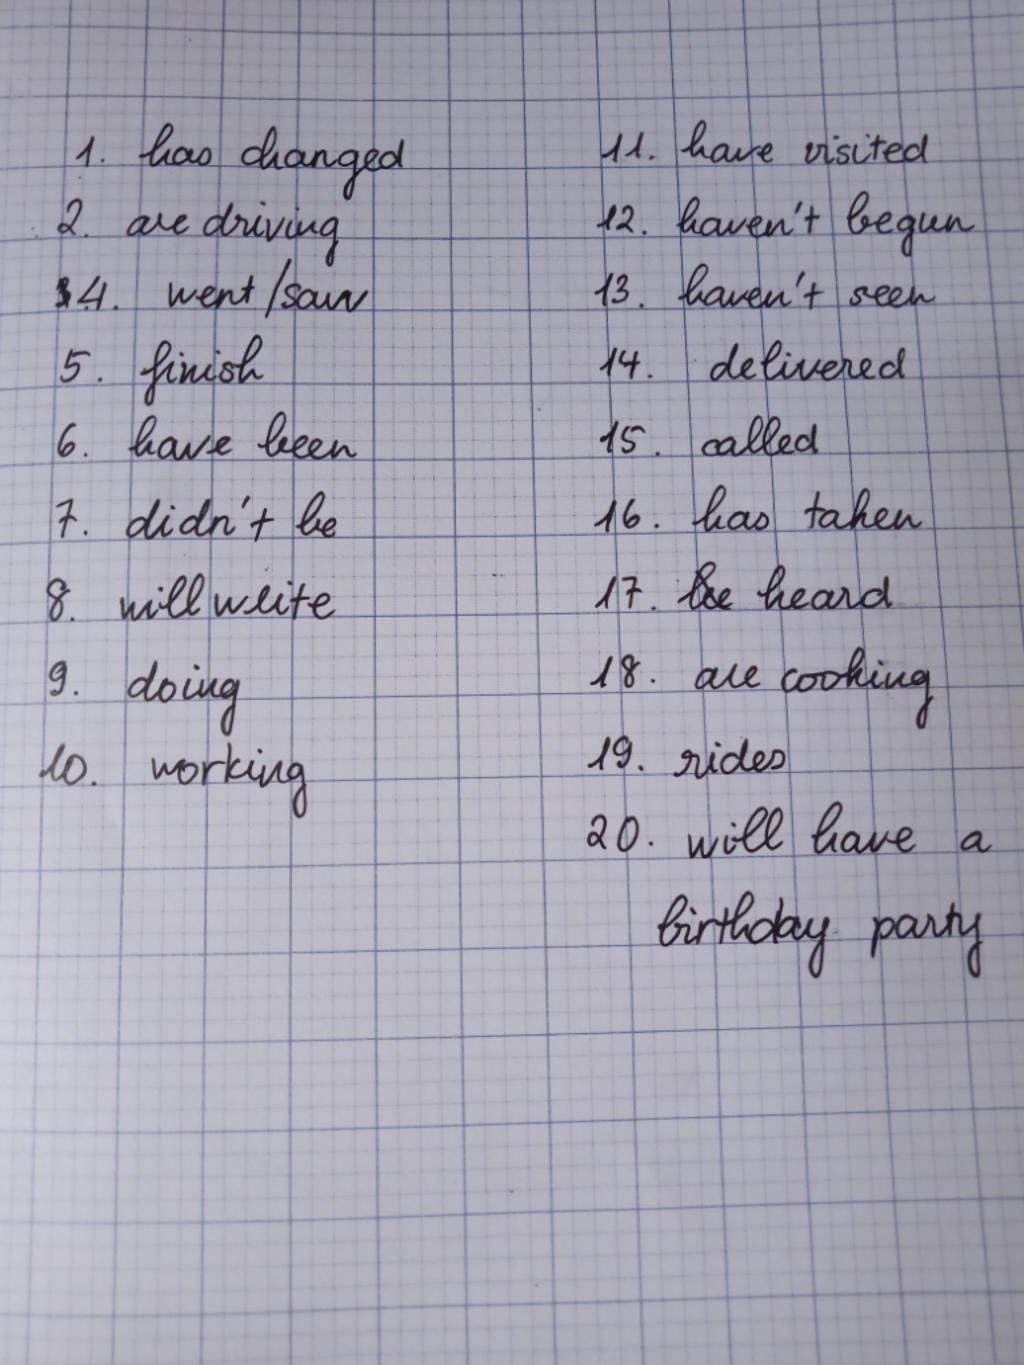 1. has changed
2. are driving
4. went/saw
5. finish
6. have been
7. didn't be
8. will write
9. doing
10. working
11. have visited
12. haven't begun
13. haven't seen
14. delivered
15. called
16. has taken
17. be heard
18. are cooking
19. rides
20. will have a
birthday party